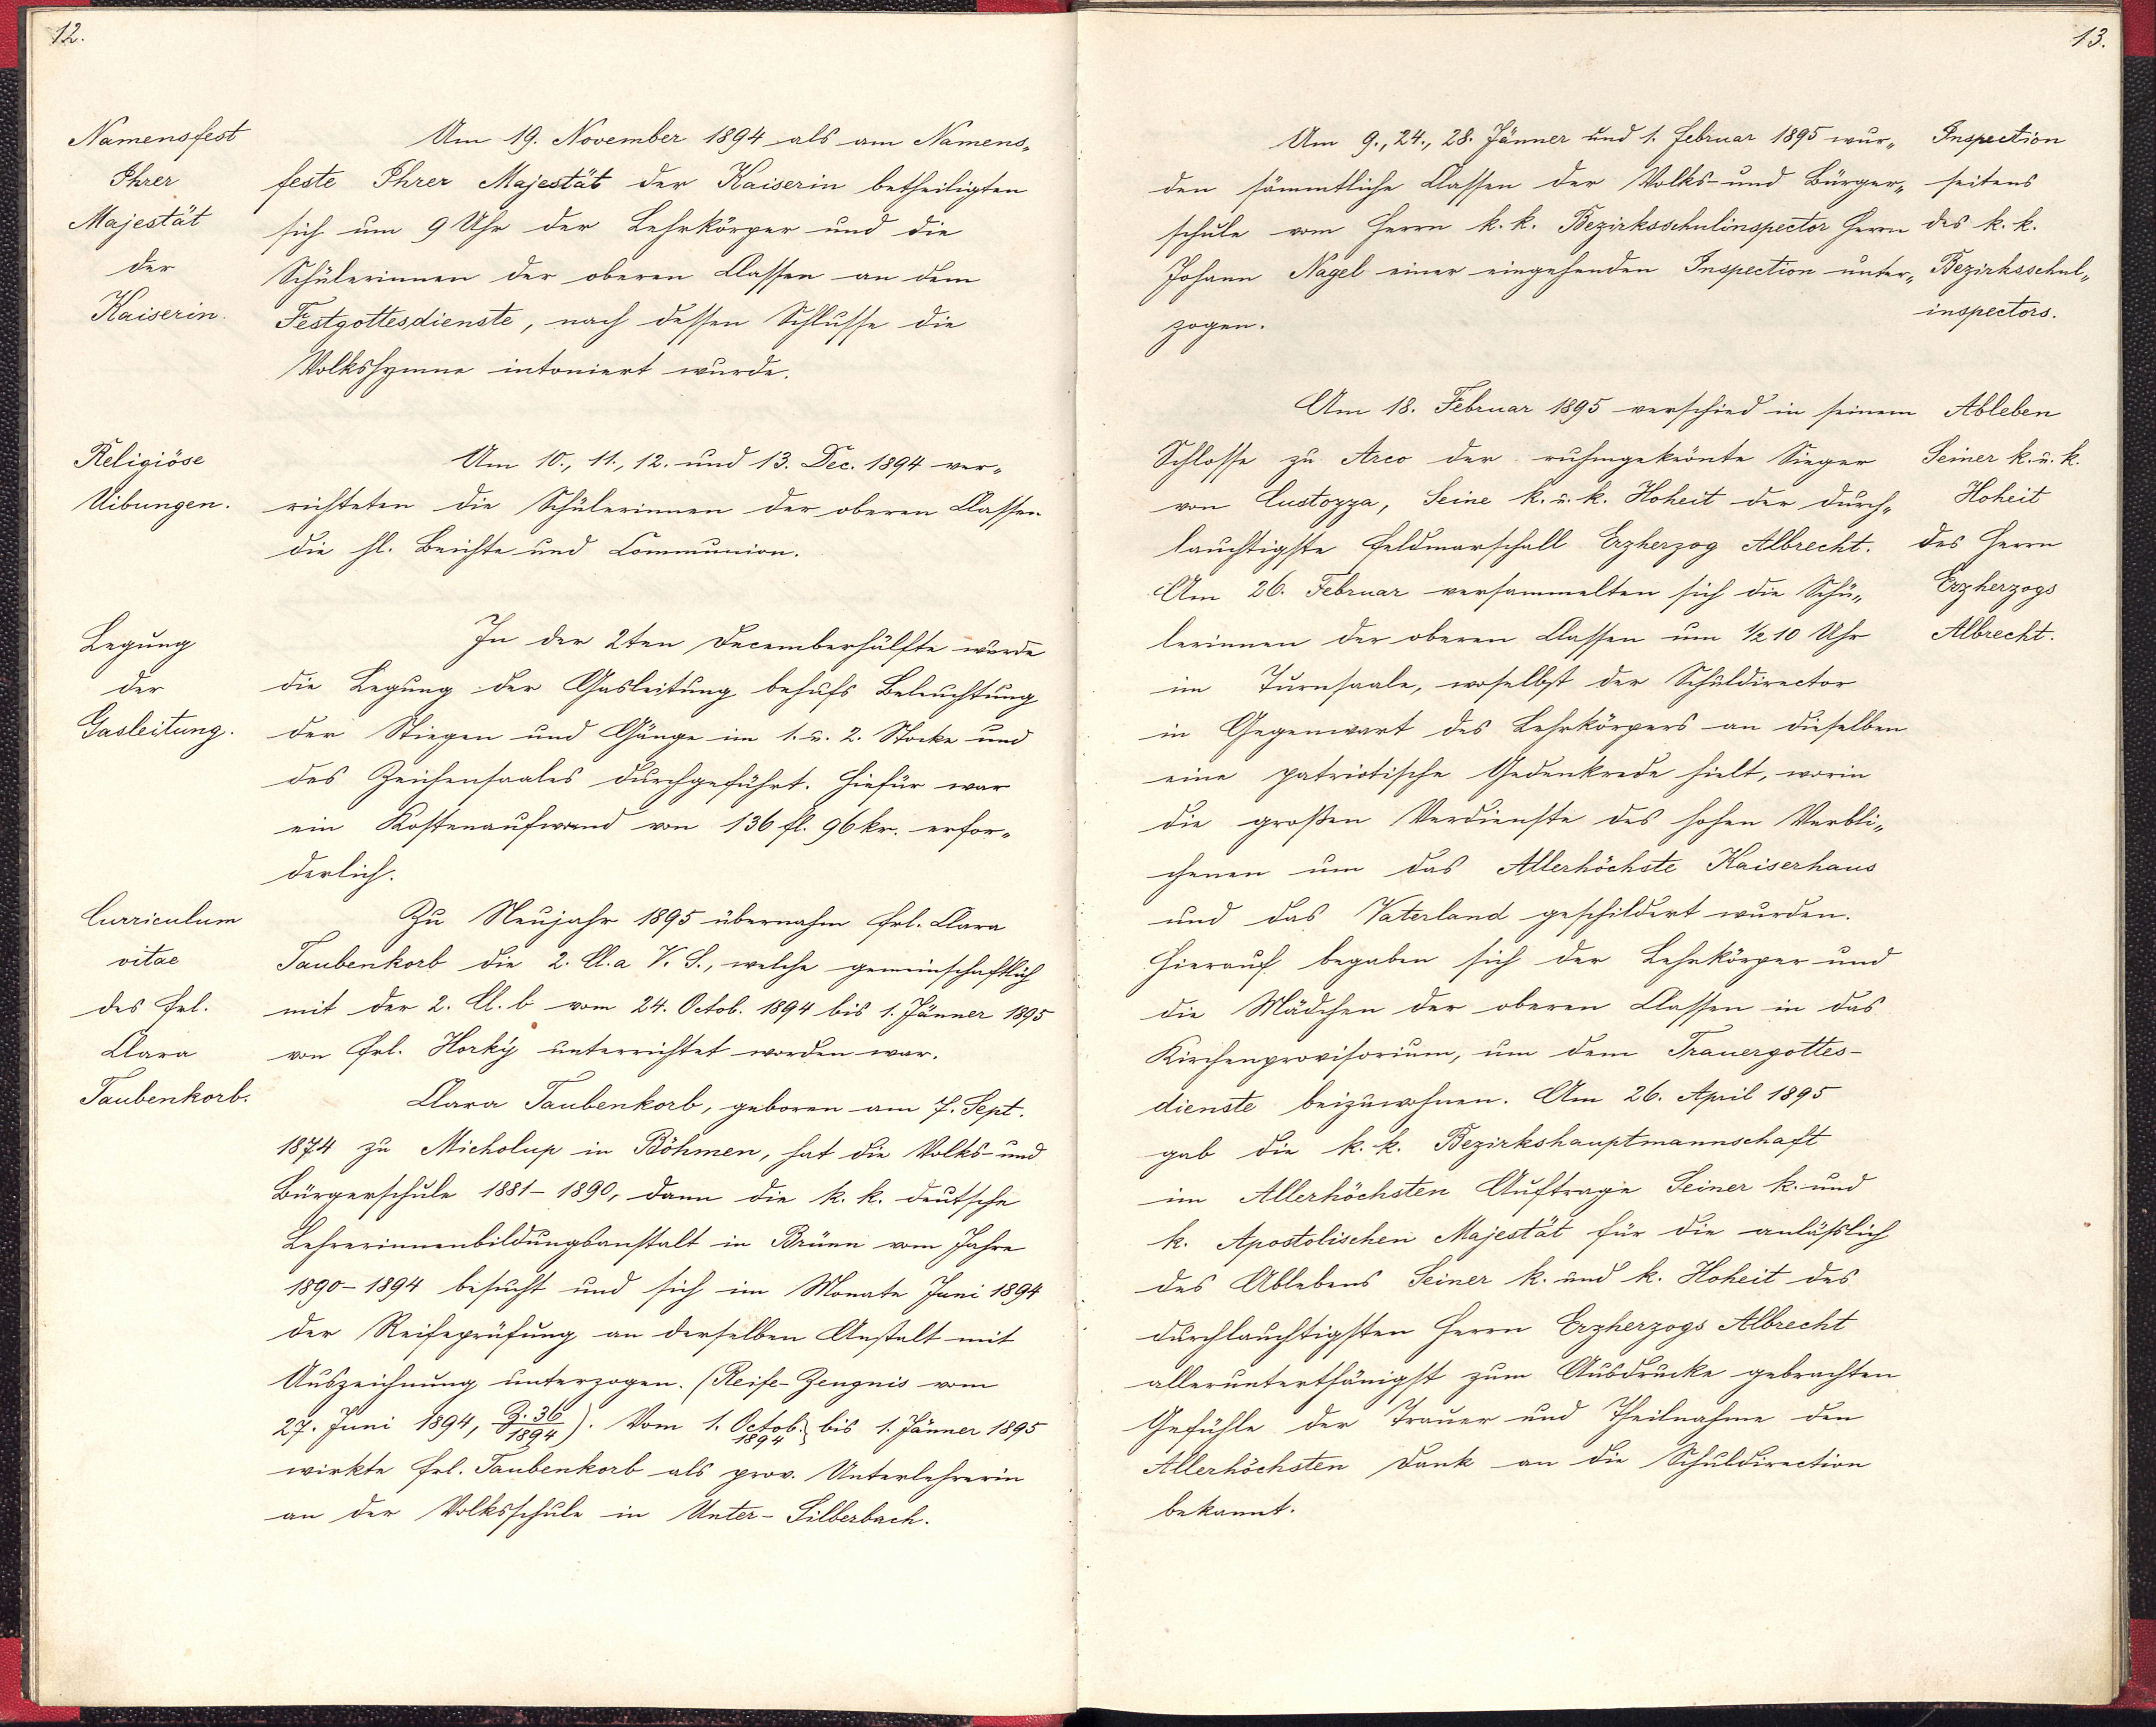 12.
Namensfest
Ihrer
Majestät
der
Kaiserin.
Am 19. November 1894 als am Namens„
feste Ihrer Majestät der Kaiserin betheiligten
sich um 9 Uhr der Lehrkörper und die
Schülerinnen der oberen Classen an dem
Festgottesdienste, nach dessen Schlusse die
Volkshymne intoniert wurde.
Religiöse
Uibungen.
Am 10., 11., 12. und 13. Dec. 1894 ver„
richteten die Schülerinnen der oberen Classen
die hl. Beichte und Communion.
Legung
der
Gasleitung.
In der 2ten Decemberhälfte wurde
die Legung der Gasleitung behufs Beleuchtung
der Stiegen und Gänge im 1. u. 2. Stocke und
des Zeichensaales durchgeführt. Hiefür war
ein Kostenaufwand von 136 fl. 96 kr. erfor„
derlich.
Curriculum
vitae
des Frl.
Clara
Taubenkorb.
Zu Neujahr 1895 übernahm Frl. Clara
Taubenkorb die 2. Cl. a V. S., welche gemeinschaftlich
mit der 2. Cl. b vom 24. Octob. 1894 bis 1. Jänner 1895
von Frl. Horký unterrichtet worden war.
Clara Taubenkorb, geboren am 7. Sept.
1874 zu Micholup in Böhmen, hat die Volks- und
Bürgerschule 1881-1890, dann die k. k. deutsche
Lehrerinnenbildungsanstalt in Brünn vom Jahre
1890-1894 besucht und sich im Monate Juni 1894
der Reifeprüfung an derselben Anstalt mit
Auszeichnung unterzogen. (Reife-Zeugnis vom
27. Juni 1894, Z. 36/1894). Vom 1. Octob. 1894 bis 1. Jänner 1895
wirkte Frl. Taubenkorb als prov. Unterlehrerin
an der Volksschule in Unter-Silberbach.
13.
Am 9., 24., 28. Jänner und 1. Februar 1895 wur„
den sämmtliche Classen der Volks- und Bürger„
schule vom Herrn k. k. Bezirksschulinspector Herrn
Johann Nagel einer eingehenden Inspection unter„
zogen.
Inspection
seitens
des k. k.
Bezirksschul„
inspectors.
Am 18. Februar 1895 verschied in seinem
Schlosse zu Arco der ruhmgekrönte Sieger
von Custozza, Seine k. u. k. Hoheit der durch„
lauchtigste Feldmarschall Erzherzog Albrecht.
Am 26. Februar versammelten sich die Schü„
lerinnen der oberen Classen um ½ 10 Uhr
im Turnsaale, woselbst der Schuldirector
in Gegenwart des Lehrkörpers an dieselben
eine patriotische Gedenkrede hielt, worin
die großen Verdienste des hohen Verbli„
chenen um das Allerhöchste Kaiserhaus
und das Vaterland geschildert wurden.
Hierauf begaben sich der Lehrkörper und
die Mädchen der oberen Classen in das
Kirchenprovisorium, um dem Trauergottes-
dienste beizuwohnen. Am 26. April 1895
gab die k. k. Bezirkshauptmannschaft
im Allerhöchsten Auftrage Seiner k. und
k. Apostolischen Majestät für die anläßlich
des Ablebens Seiner k. und k. Hoheit des
durchlauchtigsten Herrn Erzherzogs Albrecht
alleruntertänigst zum Ausdrucke gebrachten
Gefühle der Trauer und Theilnahme den
Allerhöchsten Dank an die Schuldirection
bekannt.
Ableben
Seiner k. u. k.
Hoheit
des Herrn
Erzherzogs
Albrecht.